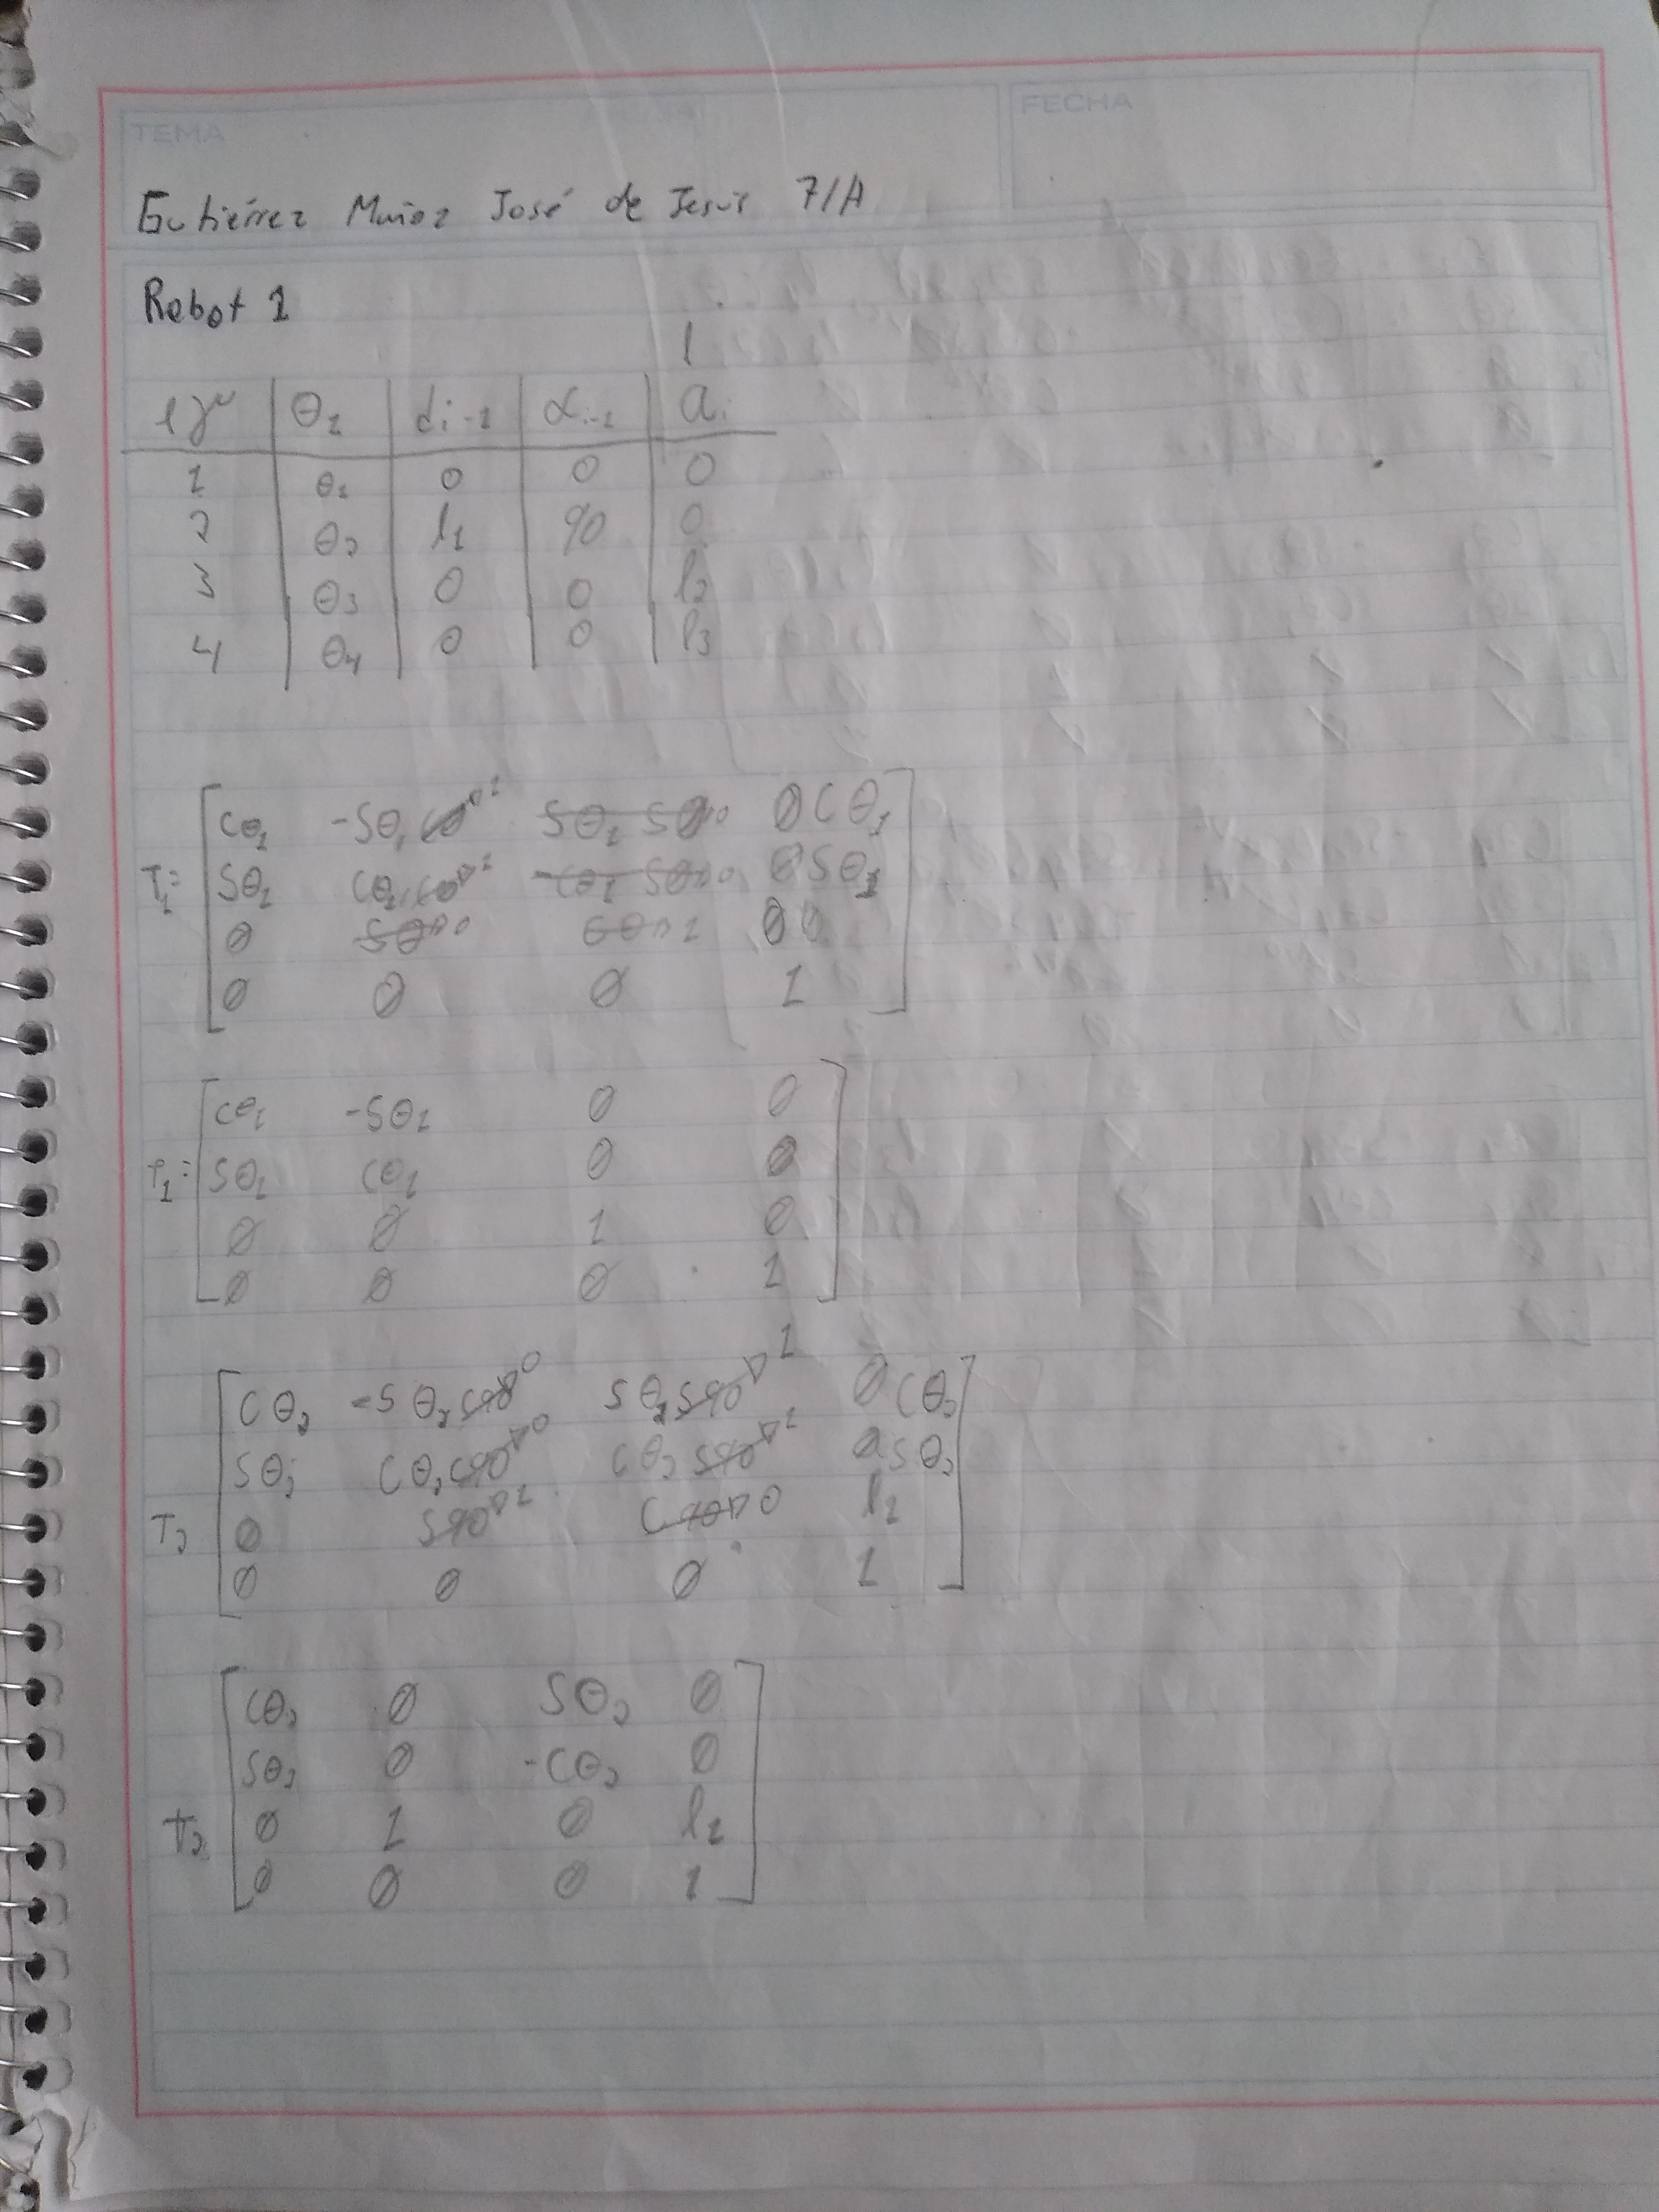 TEMA
FECHA
Gutiérrez Muñoz José de Jesús 7/A
Robot 1
l
θ1 di-1 αi-1 ai
1 θ1 0 0 0
2 θ2 l1 90 0
3 θ3 0 0 l2
4 θ4 0 0 l3
Cθ1 -Sθ1 C0 1 Sθ1 S0 0 0Cθ1
T1= Sθ1 Cθ1 C0 1 -Cθ1 S0 0 0Sθ1
0 S0 0 C0 1 0
0 0 0 1
Cθ1 -Sθ1 0 0
T1= Sθ1 Cθ1 0 0
0 0 1 0
0 0 0 1
Cθ2 -Sθ2 C90 0 Sθ2 S90 1 0Cθ2
Sθ2 Cθ2 C90 0 Cθ2 S90 1 Sθ2
T2 0 S90 1 C90 0 l1
0 0 0 1
Cθ2 0 Sθ2 0
Sθ2 0 -Cθ2 0
T2 0 1 0 l1
0 0 0 1